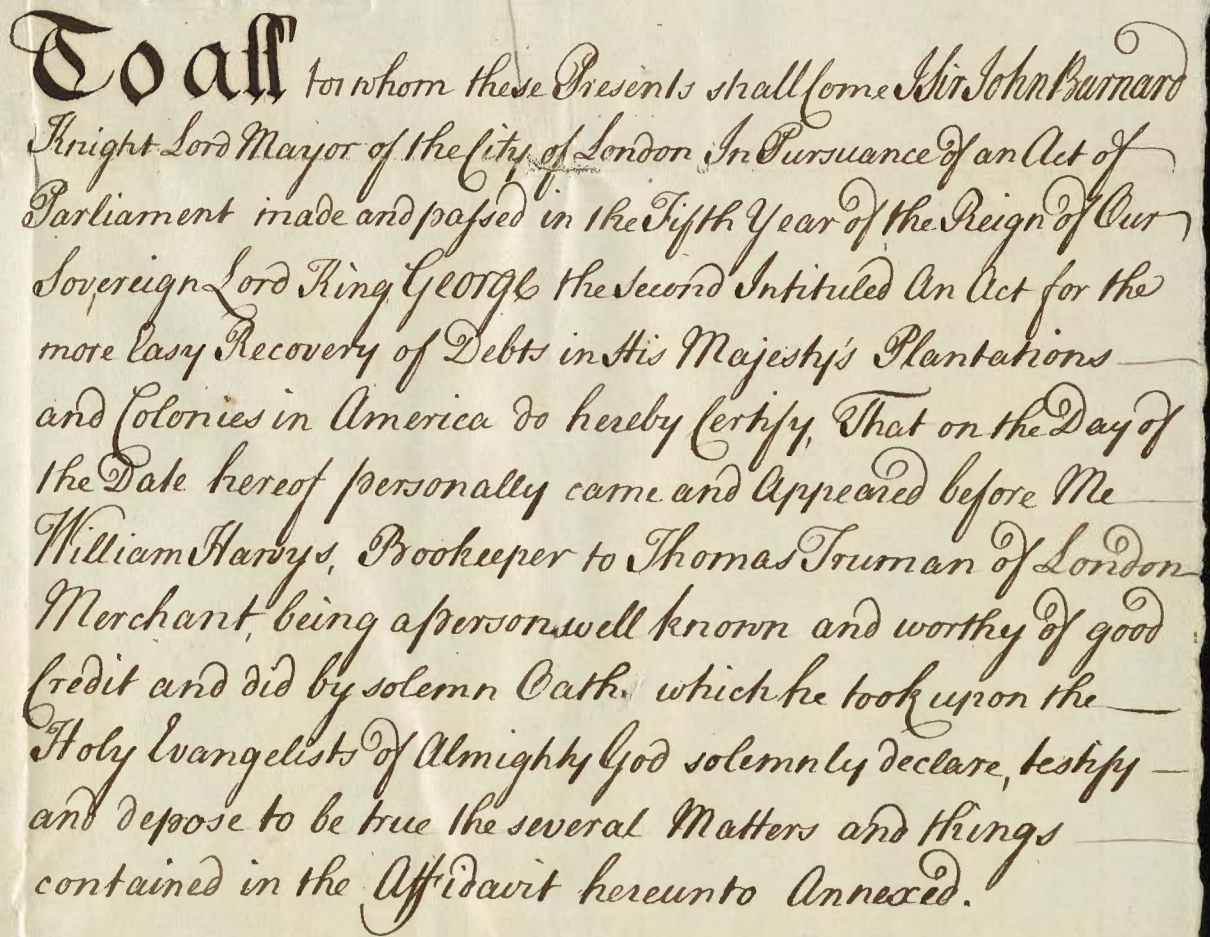 To all to whom these Presents shall Come I Sir John Barnard
Knight Lord Mayor of the City of London In Pursuance of an Act of
Parliament made and passed in the Fifth Year of the Reign of Our
Sovereign Lord King George the Second Intituled An Act for the
more Easy Recovery of Debts in His Majesty's Plantations
and Colonies in America do hereby Certify, That on the Day of
the Date hereof personally came and Appeared before Me
William Harvys, Bookeeper to Thomas Truman of London
Merchant, being a person well known and worthy of good
Credit and did by solemn Oath which he took upon the
Holy Evangelists of Almighty God solemnly declare, testify
and depose to be true the several Matters and things
contained in the Affidavit hereunto Annexed.